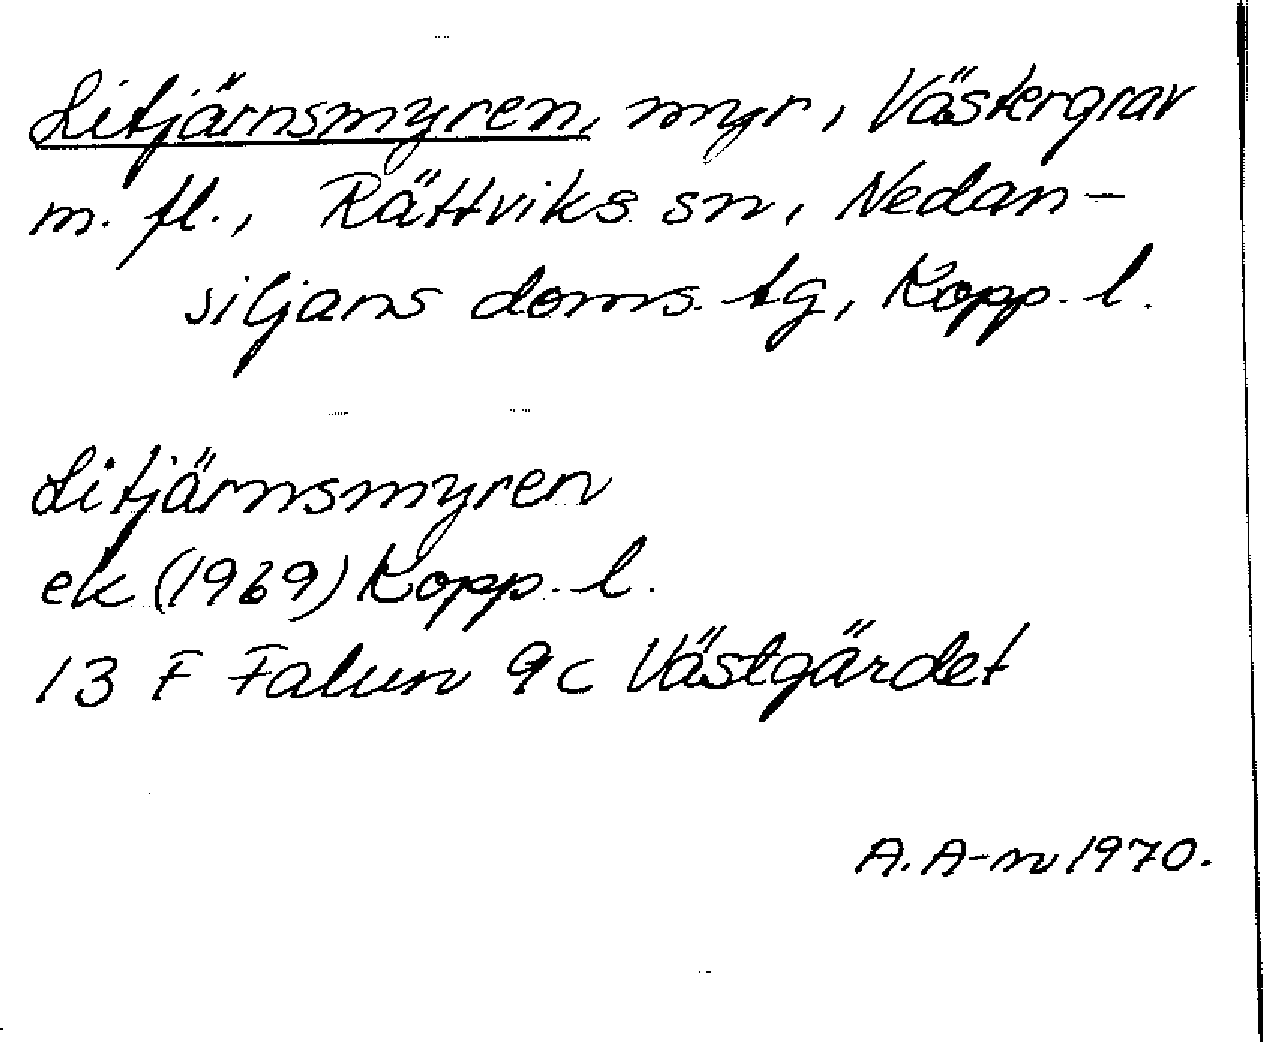 Litjärnsmyren, myr, Västergrav
m. fl., Rättviks sn, Nedan-
siljans doms. tg, Kopp. l.
Litjärnsmyren
ek (1969) Kopp. l.
13 F Falun 9c Västgärdet
A. A-n 1970.